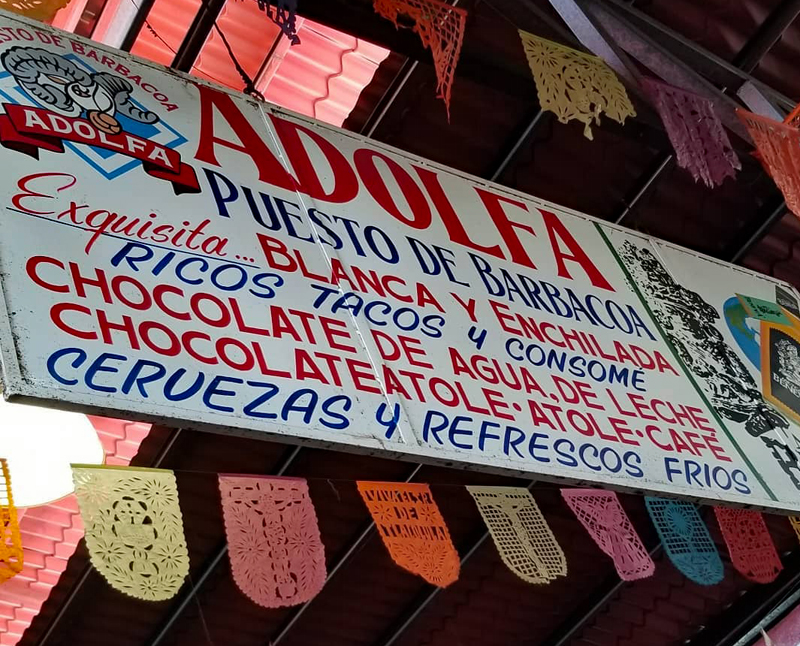 PUESTO DE BARBACOA
ADOLFA
ADOLFA
PUESTO DE BARBACOA
Exquisita... BLANCA Y ENCHILADA
RICOS TACOS y CONSOMÉ
CHOCOLATE DE AGUA, DE LECHE
CHOCOLATEATOLE·ATOLE·CAFÉ
CERVEZAS y REFRESCOS FRIOS
DE